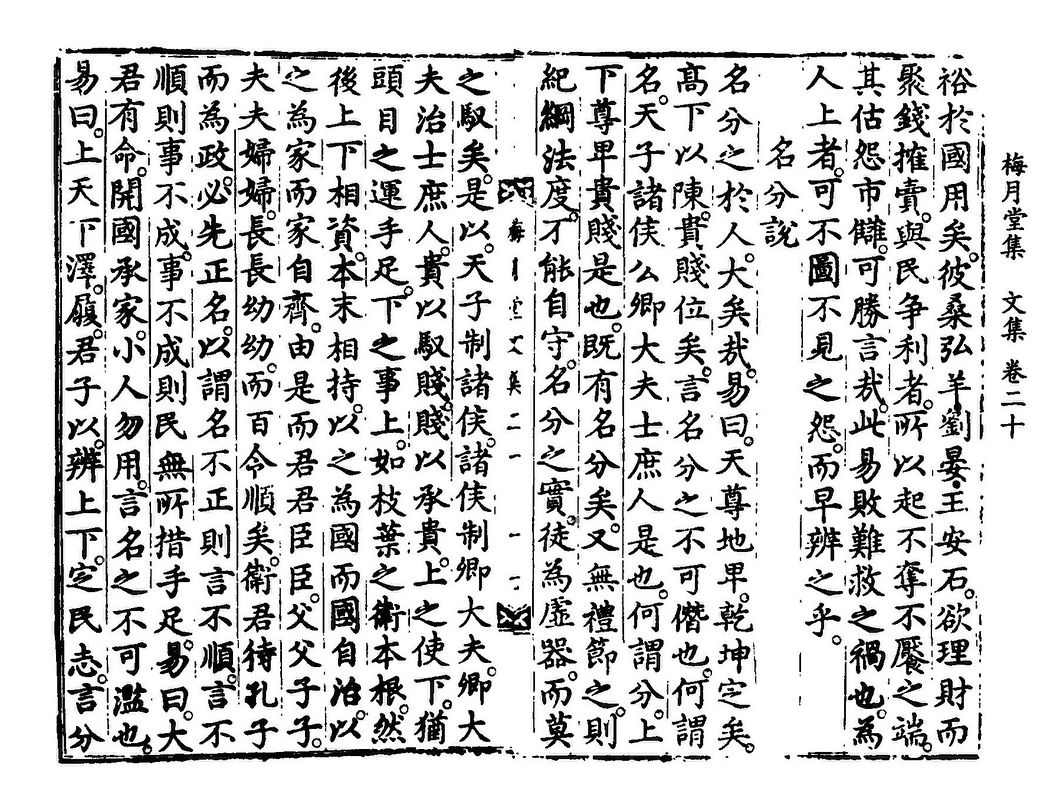 梅月堂集 文集 卷二十
裕於國用矣。彼桑弘羊・劉晏・王安石。欲理財而
聚錢搉賣。與民争利者。所以起不奪不饜之端。
其估怨市讎。可勝言哉。此易敗難救之禍也。為
人上者。可不圖不見之怨。而早辨之乎。
名分說
名分之於人。大矣哉。易曰。天尊地卑。乾坤定矣。
高下以陳。貴賤位矣。言名分之不可僭也。何謂
名。天子諸侯公卿大夫士庶人是也。何謂分。上
下尊卑貴賤是也。既有名分矣。又無禮節之。則
紀綱法度。不能自守。名分之實。徒為虛器。而莫
之馭矣。是以。天子制諸侯。諸侯制卿大夫。卿大
夫治士庶人。貴以馭賤。賤以承貴。上之使下。猶
頭目之運手足。下之事上。如枝葉之衛本根。然
後上下相資。本末相持。以之為國而國自治。以
之為家而家自齊。由是而君君臣臣。父父子子。
夫夫婦婦。長長幼幼。而百令順矣。衛君待孔子
而為政。必先正名。以謂名不正則言不順。言不
順則事不成。事不成則民無所措手足。易曰。大
君有命。開國承家。小人勿用。言名之不可濫也。
易曰。上天下澤。履。君子以。辨上下。定民志。言分